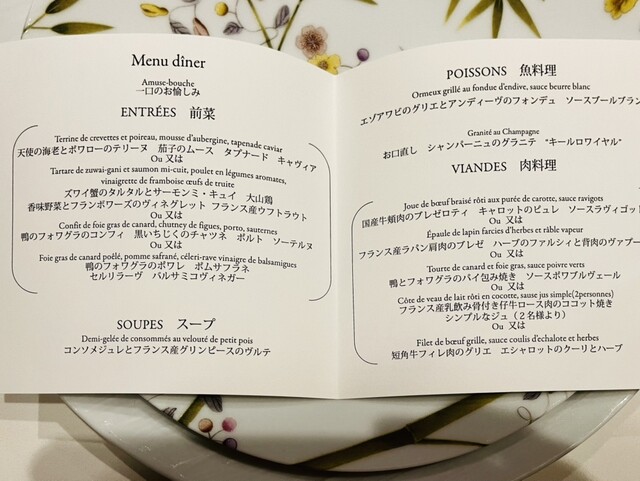 Menu dîner
Amuse-bouche
一口のお愉しみ
ENTRÉES 前菜
Terrine de crevettes et poireau, mousse d'aubergine, tapenade caviar
天使の海老とポワローのテリーヌ 茄子のムース タプナード キャヴィア
Ou 又は
Tartare de zuwai-gani et saumon mi-cuit, poulet en légumes aromates,
vinaigrette de framboise œufs de truite
ズワイ蟹のタルタルとサーモンミ・キュイ 大山鶏
香味野菜とフランボワーズのヴィネグレット フランス産ウフトラウト
Ou 又は
Confit de foie gras de canard, chutney de figues, porto, sauternes
鴨のフォワグラのコンフィ 黒いちじくのチャツネ ポルト ソーテルヌ
Ou 又は
Foie gras de canard poêlé, pomme safrané, céleri-rave vinaigre de balsamigues
鴨のフォワグラのポワレ ポムサフラネ
セルリラーヴ バルサミコヴィネガー
SOUPES スープ
Demi-gelée de consommés au velouté de petit pois
コンソメジュレとフランス産グリンピースのヴルテ
POISSONS 魚料理
Ormeux grillé au fondue d'endive, sauce beurre blanc
エゾアワビのグリエとアンディーヴのフォンデュ ソースブールブラン
Granité au Champagne
お口直し シャンパーニュのグラニテ "キールロワイヤル"
VIANDES 肉料理
Joue de bœuf braisé rôti aux purée de carotte, sauce ravigots
国産牛頬肉のブレゼロティ キャロットのピュレ ソースラヴィゴット
Ou 又は
Épaule de lapin farcies d'herbes et râble vapeur
フランス産ラパン肩肉のブレゼ ハーブのファルシィと背肉のヴァプール
Ou 又は
Tourte de canard et foie gras, sauce poivre verts
鴨とフォワグラのパイ包み焼き ソースポワブルヴェール
Ou 又は
Côte de veau de lait rôti en cocotte, sause jus simple(2personnes)
フランス産乳飲み骨付き仔牛ロース肉のココット焼き
シンプルなジュ(2名様より)
Ou 又は
Filet de bœuf grille, sauce coulis d'echalote et herbes
短角牛フィレ肉のグリエ エシャロットのクーリとハーブ